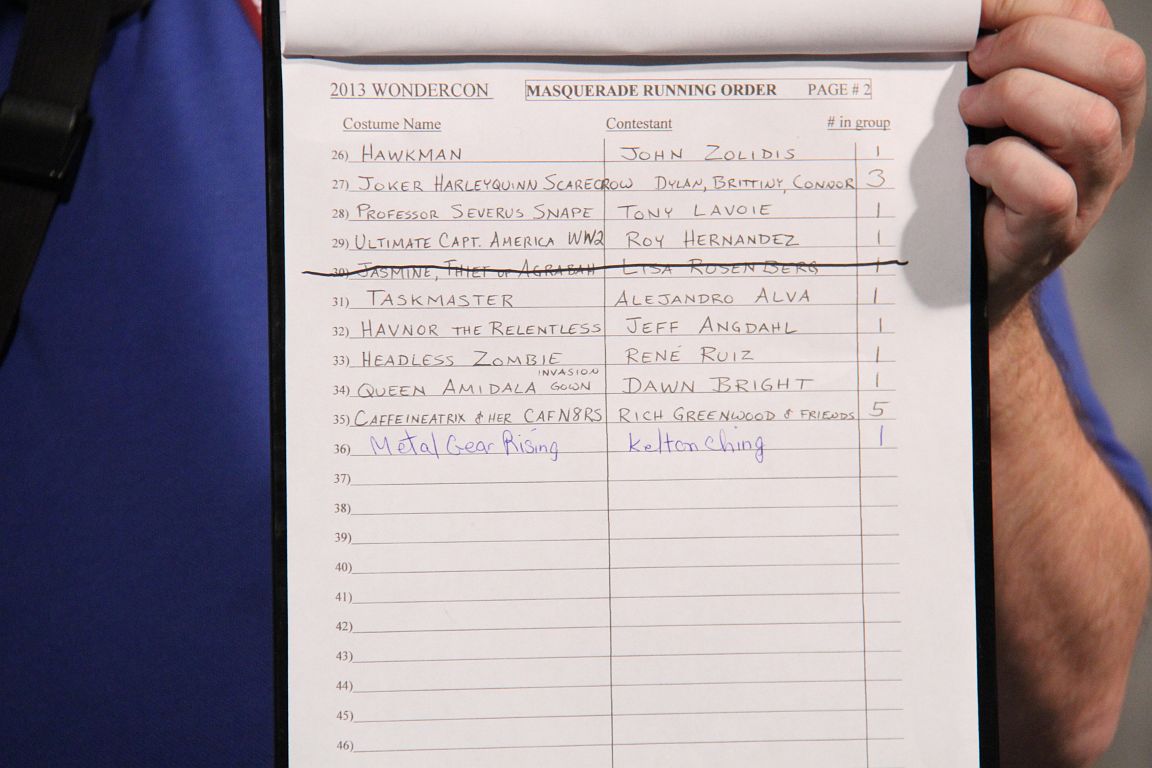 2013 WONDERCON MASQUERADE RUNNING ORDER PAGE # 2
Costume Name Contestant # in group
26) HAWKMAN JOHN ZOLIDIS 1
27) JOKER HARLEYQUINN SCARECROW DYLAN, BRITTINY, CONNOR 3
28) PROFESSOR SEVERUS SNAPE TONY LAVOIE 1
29) ULTIMATE CAPT. AMERICA WW2 ROY HERNANDEZ 1
30) JASMINE, THIEF OF AGRABAH LISA ROSENBERG 1
31) TASKMASTER ALEJANDRO ALVA 1
32) HAVNOR THE RELENTLESS JEFF ANGDAHL 1
33) HEADLESS ZOMBIE RENÉ RUIZ 1
34) QUEEN AMIDALA INVASION GOWN DAWN BRIGHT 1
35) CAFFEINEATRIX & HER CAFN8RS RICH GREENWOOD & FRIENDS 5
36) Metal Gear Rising Kelton Ching 1
37)
38)
39)
40)
41)
42)
43)
44)
45)
46)